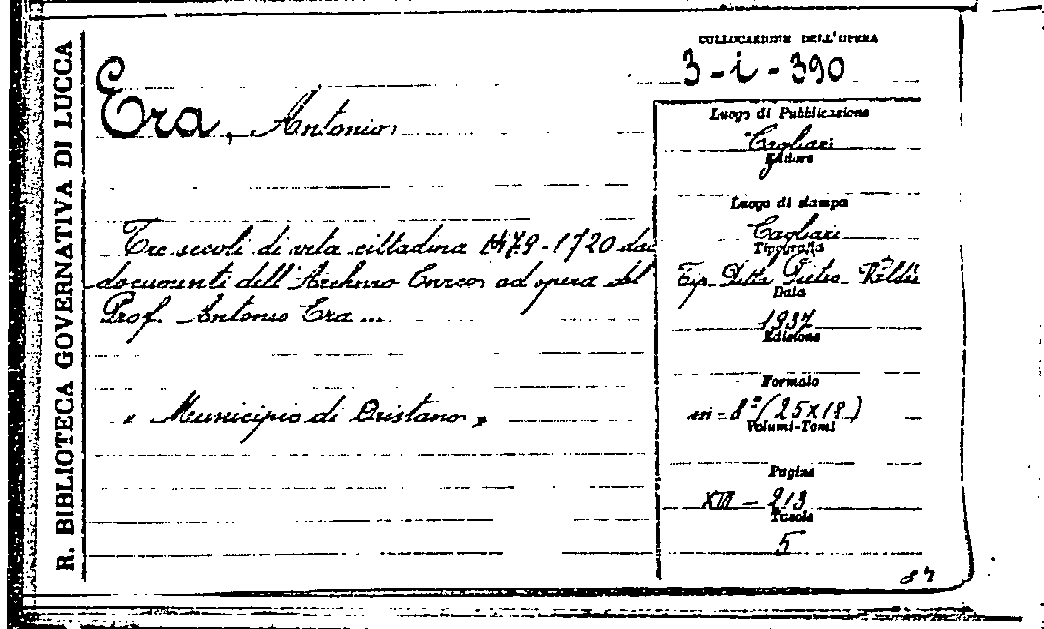 R. BIBLIOTECA GOVERNATIVA DI LUCCA
COLLOCAZIONE DELL'OPERA
3-i-390
Era, Antonio
Tre secoli di vita cittadina 1479-1720 dai
documenti dell'Archivio ad opera del
Prof. Antonio Era...
« Municipio di Oristano »
Luogo di Pubblicazione
Cagliari
Editore
Luogo di stampa
Cagliari
Tipografia
Tip. Ditta Pietro Valdès
Data
1937
Edizione
Formato
in-8º (25x18)
Volumi-Tomi
Pagine
213
Tavole
5